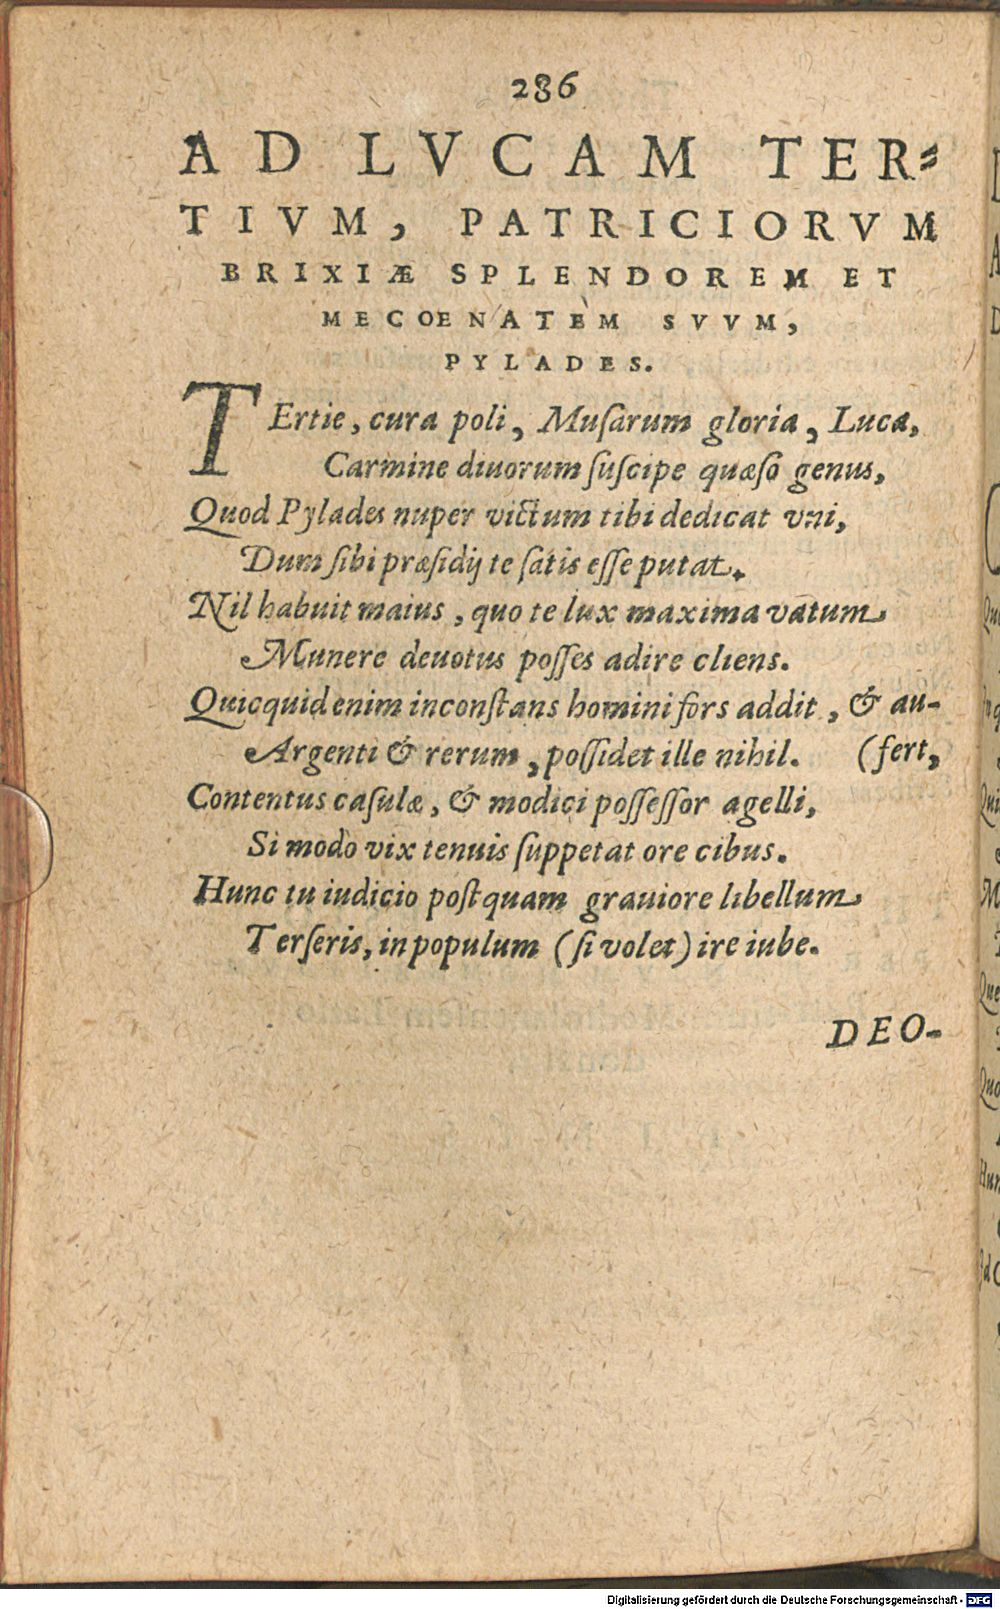 286
AD LVCAM TER-
TIVM, PATRICIORVM
BRIXIÆ SPLENDOREM ET
MECOENATEM SVVM,
PYLADES.
TErtie, cura poli, Muſarum gloria, Luca,
Carmine diuorum ſuſcipe quæſo genus,
Quod Pylades nuper victum tibi dedicat vni,
Dum ſibi præſidij te ſatis eſſe putat.
Nil habuit maius, quo te lux maxima vatum
Munere deuotus poſſes adire cliens.
Quicquid enim inconſtans homini fors addit, & au-
Argenti & rerum, poſſidet ille nihil. (fert,
Contentus caſulæ, & modici poſſeſſor agelli,
Si modò vix tenuis ſuppetat ore cibus.
Hunc tu iudicio poſtquam grauiore libellum
Terſeris, in populum (ſi volet) ire iube.
DEO-
Digitalisierung gefördert durch die Deutsche Forschungsgemeinschaft - DFG